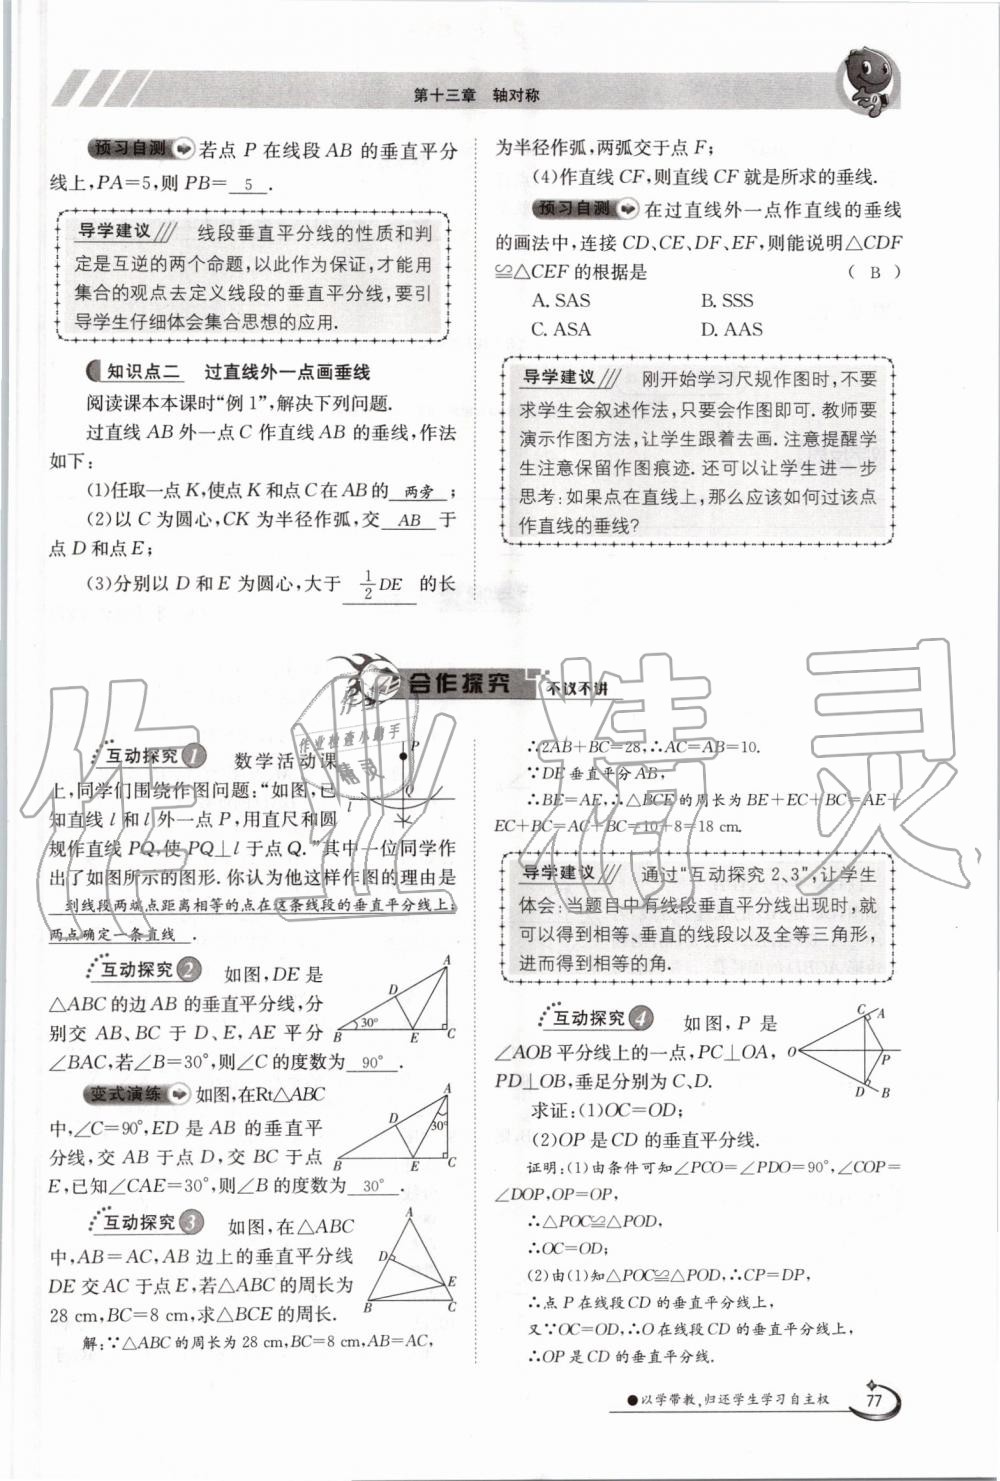 第十三章 轴对称
预习自测 若点 P 在线段 AB 的垂直平分
线上,PA=5,则 PB= 5 .
导学建议 线段垂直平分线的性质和判
定是互逆的两个命题,以此作为保证,才能用
集合的观点去定义线段的垂直平分线,要引
导学生仔细体会集合思想的应用.
知识点二 过直线外一点画垂线
阅读课本本课时“例 1”,解决下列问题.
过直线 AB 外一点 C 作直线 AB 的垂线,作法
如下:
(1)任取一点 K,使点 K 和点 C 在 AB 的 两旁 ;
(2)以 C 为圆心,CK 为半径作弧,交 AB 于
点 D 和点 E;
(3)分别以 D 和 E 为圆心,大于 1/2 DE 的长
为半径作弧,两弧交于点 F;
(4)作直线 CF,则直线 CF 就是所求的垂线.
预习自测 在过直线外一点作直线的垂线
的画法中,连接 CD、CE、DF、EF,则能说明△CDF
≌△CEF 的根据是 ( B )
A. SAS B. SSS
C. ASA D. AAS
导学建议 刚开始学习尺规作图时,不要
求学生会叙述作法,只要会作图即可. 教师要
演示作图方法,让学生跟着去画. 注意提醒学
生注意保留作图痕迹. 还可以让学生进一步
思考:如果点在直线上,那么应该如何过该点
作直线的垂线?
合作探究 不议不讲
互动探究 1 数学活动课
上,同学们围绕作图问题:“如图,已
知直线 l 和 l 外一点 P,用直尺和圆
规作直线 PQ,使 PQ⊥l 于点 Q.”其中一位同学作
出了如图所示的图形. 你认为他这样作图的理由是
到线段两端点距离相等的点在这条线段的垂直平分线上;
两点确定一条直线 .
P
Q
l
互动探究 2 如图,DE 是
△ABC 的边 AB 的垂直平分线,分
别交 AB、BC 于 D、E,AE 平分
∠BAC,若∠B=30°,则∠C 的度数为 90° .
A
D
30°
B E C
变式演练 如图,在Rt△ABC
中,∠C=90°,ED 是 AB 的垂直平
分线,交 AB 于点 D,交 BC 于点
E,已知∠CAE=30°,则∠B 的度数为 30° .
A
D
30°
B E C
互动探究 3 如图,在△ABC
中,AB=AC,AB 边上的垂直平分线
DE 交 AC 于点 E,若△ABC 的周长为
28 cm,BC=8 cm,求△BCE 的周长.
A
D
E
B C
解:∵△ABC 的周长为 28 cm,BC=8 cm,AB=AC,
∴2AB+BC=28,∴AC=AB=10.
∵DE 垂直平分 AB,
∴BE=AE,∴△BCE 的周长为 BE+EC+BC=AE+
EC+BC=AC+BC=10+8=18 cm.
导学建议 通过“互动探究 2、3”,让学生
体会:当题目中有线段垂直平分线出现时,就
可以得到相等、垂直的线段以及全等三角形,
进而得到相等的角.
互动探究 4 如图,P 是
∠AOB 平分线上的一点,PC⊥OA,
PD⊥OB,垂足分别为 C、D.
求证:(1)OC=OD;
(2)OP 是 CD 的垂直平分线.
C A
O
P
D B
证明:(1)由条件可知∠PCO=∠PDO=90°,∠COP=
∠DOP,OP=OP,
∴△POC≌△POD,
∴OC=OD;
(2)由(1)知△POC≌△POD,∴CP=DP,
∴点 P 在线段 CD 的垂直平分线上,
又∵OC=OD,∴O 在线段 CD 的垂直平分线上,
∴OP 是 CD 的垂直平分线.
●以学带教,归还学生学习自主权 77
作业精灵
作业检查小助手
精灵